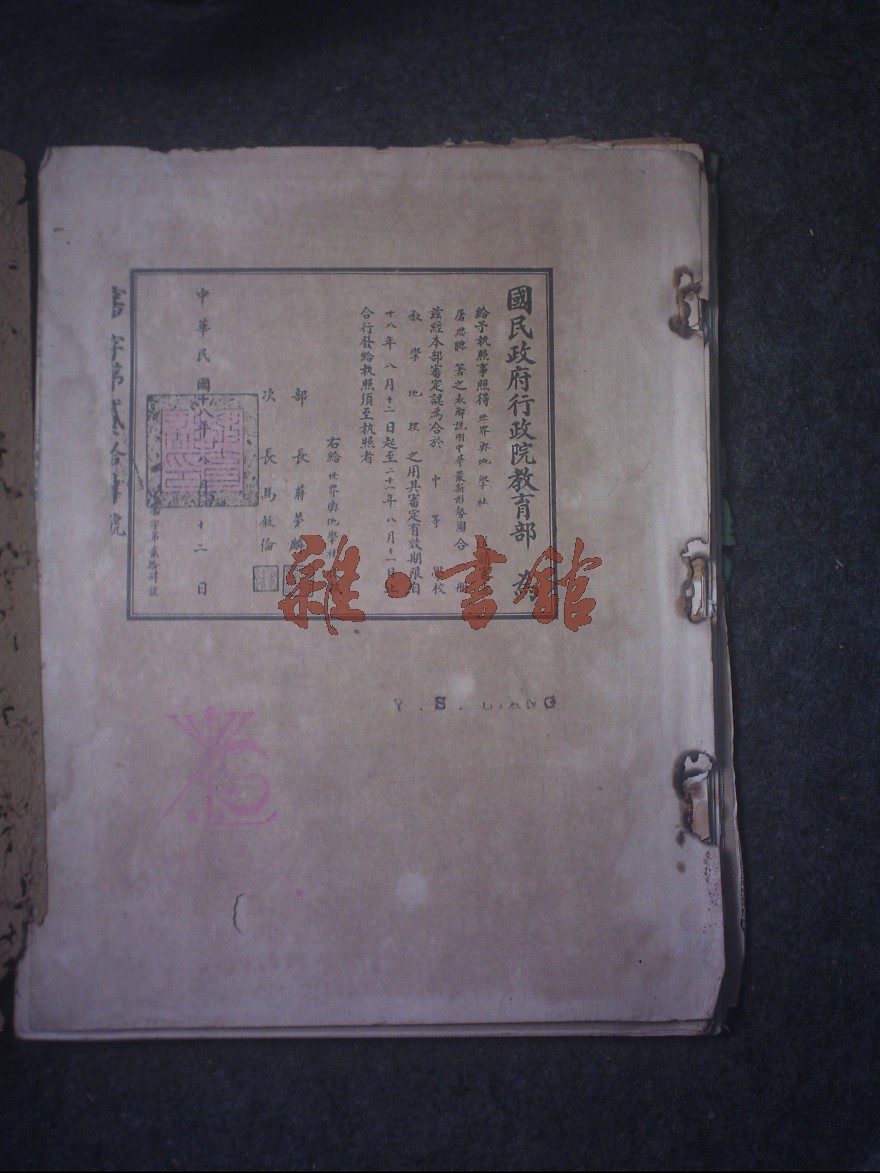 國民政府行政院教育部 為
給予執照事照得 世界輿地學社
屠思聰 著之表解說明中華最新形勢圖合 冊
茲經本部審定認為合於 中等 學校
教學地理 之用其審定有效期限自
十八年 八月十二日起至二十一年 八月十一日止
合行發給執照須至執照者
右給 世界輿地學社
部 長 蔣夢麟
次 長 馬敘倫
中華民國十八年八月十二日
字第貳拾肆號
字第貳拾肆號
雜·書館